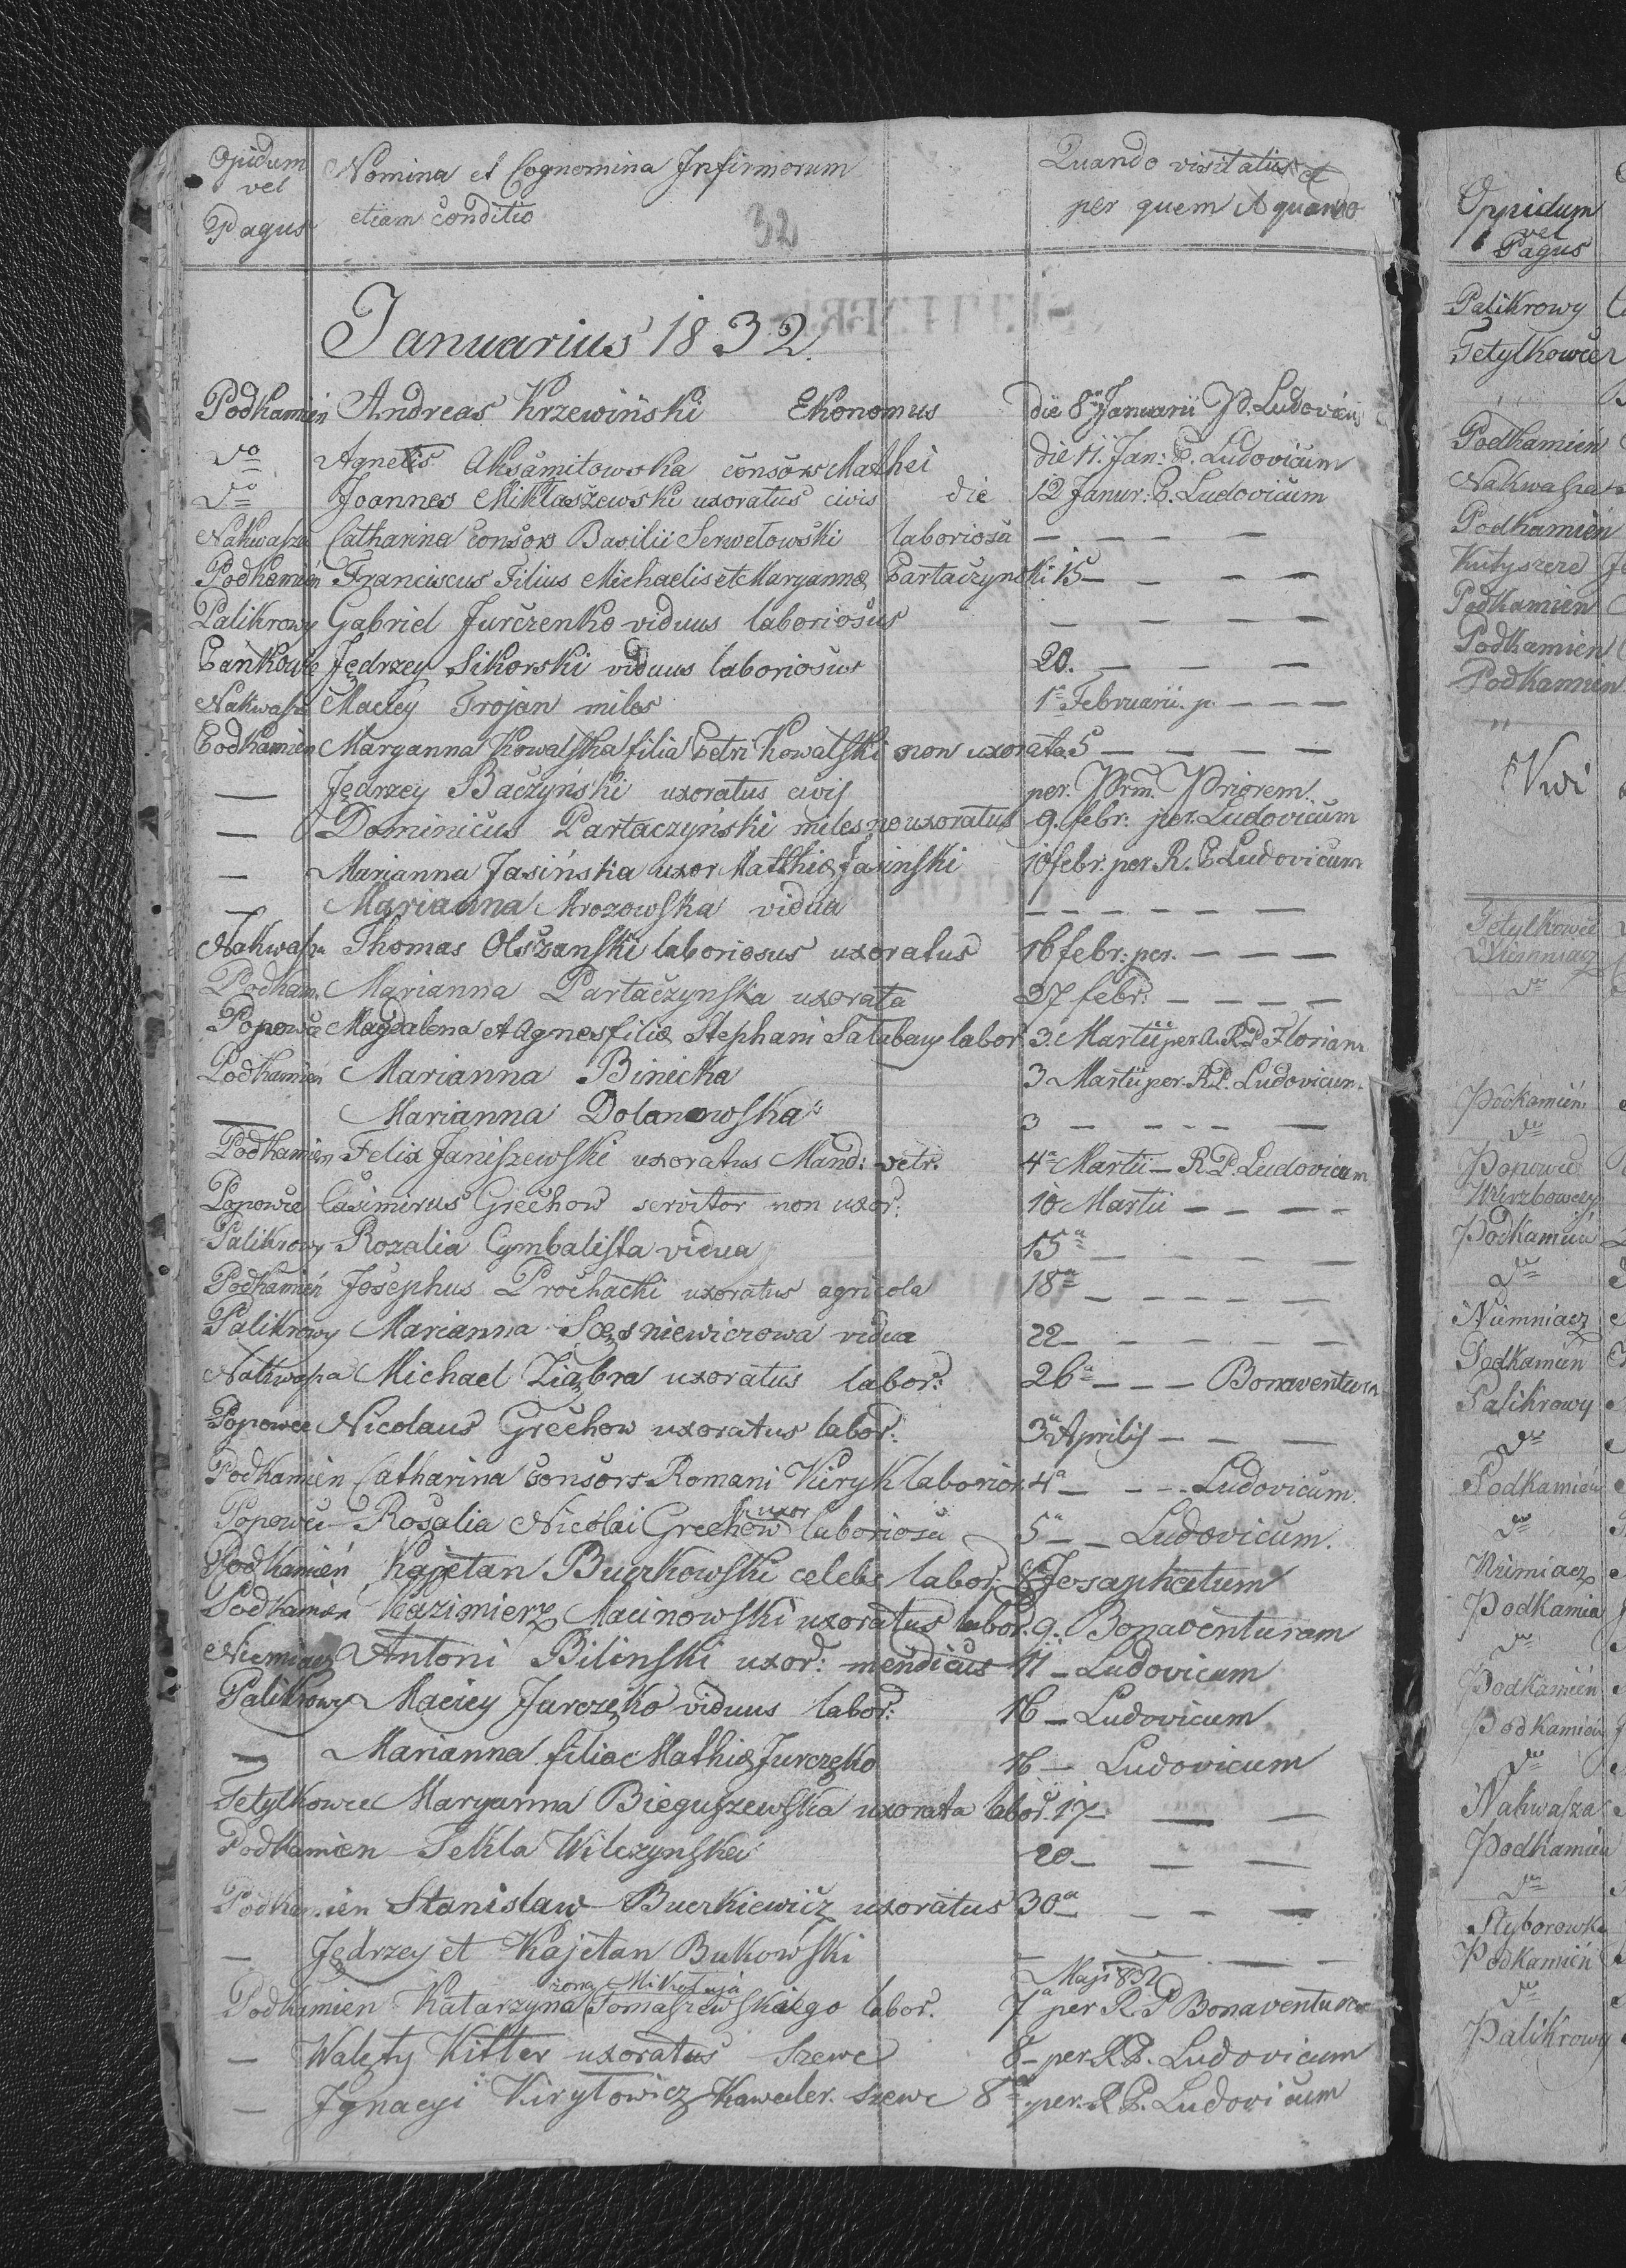 Opidum vel Pagus | Nomina et Cognomina Infirmorum etiam conditio | Quando visitatus et per quem A quando
32
Januarius 1832.
Podkamień Andreas Krzewiński Ekonomus die 8a Januarii P. Ludovicus
do Agnetis Aksamitowska consors Mathei die 11. Jan: P. Ludovicum
do Joannes Miktaszewski uxoratus civis die 12 Januar: P. Ludovicum
Nakwasza Catharina consors Basilii Serwetowski laboriosa — — — —
Podkamień Franciscus Filius Michaelis et Maryannæ Partaczynski 15 — — — —
Palikrowy Gabriel Jurczenko viduus laboriosus — — — —
Pańkowce Jędrzey Sikorski viduus laboriosus 20. — — —
Nakwasza Maciey Trojan miles 1a Februarii. p. — — —
Podkamien Maryanna Kowalska filia Petri Kowalski non uxorata 5 — — — —
— Jędrzey Baczyński uxoratus civis per. Prm. Priorem
— Dominicus Partaczyński miles no uxoratus 9. febr: per. Ludovicum
— Marianna Jasińska uxor Matthiæ Jasinski 10 febr: per R. P. Ludovicum
— Marianna Mrozowska vidua — — — — — —
Nakwasza Thomas Olszanski laboriosus uxoratus 16 febr: per. — — —
Podkam. Marianna Partaczynska uxorata 27 febr: — — — —
Popowce Magdalena et Agnes filiæ Stephani Salabay labor: 3. Martii per A. R. P. Florian
Podkamień Marianna Binicka 3 Martii per. R. P. Ludovicum.
— Marianna Dolanowska 3 — — — — —
Podkamien Felix Janiszewski uxoratus Mand: vetr. 4a Martii — R. P. Ludovicum
Popowce Casimirus Grechow servitor non uxor: 10 Martii — — — —
Palikrowy Rozalia Cymbalista vidua 15a — — — — —
Podkamień Josephus Prochacki uxoratus agricola 18a — — — — —
Palikrowy Marianna Sczesniewiczowa vidua 22 — — — — —
Nakwasza Michael Ziąbra uxoratus labor: 26a — — — Bonaventura
Popowce Nicolaus Grechow uxoratus labor: 3a Aprilis — — —
Podkamien Catharina consors Romani Kiryk laborios 4a — — — Ludovicum
Popowce Rosalia Nicolai Grechow uxor laboriosa 5a — — Ludovicum.
Podkamień Kajetan Buczkowski celebs labor: 8 Josaphatum
Podkamień Kazimierz Macinowski uxoratus labor. 9. Bonaventuram
Niemiacz Antoni Bilinski uxor: mendicus 11 — Ludovicum
Palikrowy Maciey Jurczęko viduus labor: 16 — Ludovicum
— Marianna filia Mathiæ Jurczęko 16 — Ludovicum
Tetylkowce Maryanna Bieguszewska uxorata labor. 17 — — —
Podkamien Tekla Wilczynska 20 — — —
Podkamien Stanislaw Buczkiewicz uxoratus 30a — — —
— Jędrzey et Kajetan Bukowski — — — —
Maji 832
Podkamien Katarzyna żona Mikołaja Tomaszewskiego labor. 7a per R. P Bonaventura
— Walęty Kitter uxoratus szewc 8 — per R. P. Ludovicum
— Jgnacyi Kiryłowicz Kawaler. szewc 8a per. R. P. Ludovicum
Oppidum vel Pagus
Palikrowy
Tetylkowce
Podkamień
Nakwasza
Podkamień
Kutyszcze
Podkamien
Podkamien
Podkamien
"
Nwi
Tetylkowce
Niemiacz
do
Podkamień
do
Popowce
Wierzbowczyk
Podkamień
do
Niemniacz
Podkamień
Palikrowy
do
Podkamień
do
Niemiacz
Podkamień
do
Podkamień
Podkamień
do
Nakwasza
Podkamień
do
Styborowka
Podkamień
do
Palikrowy